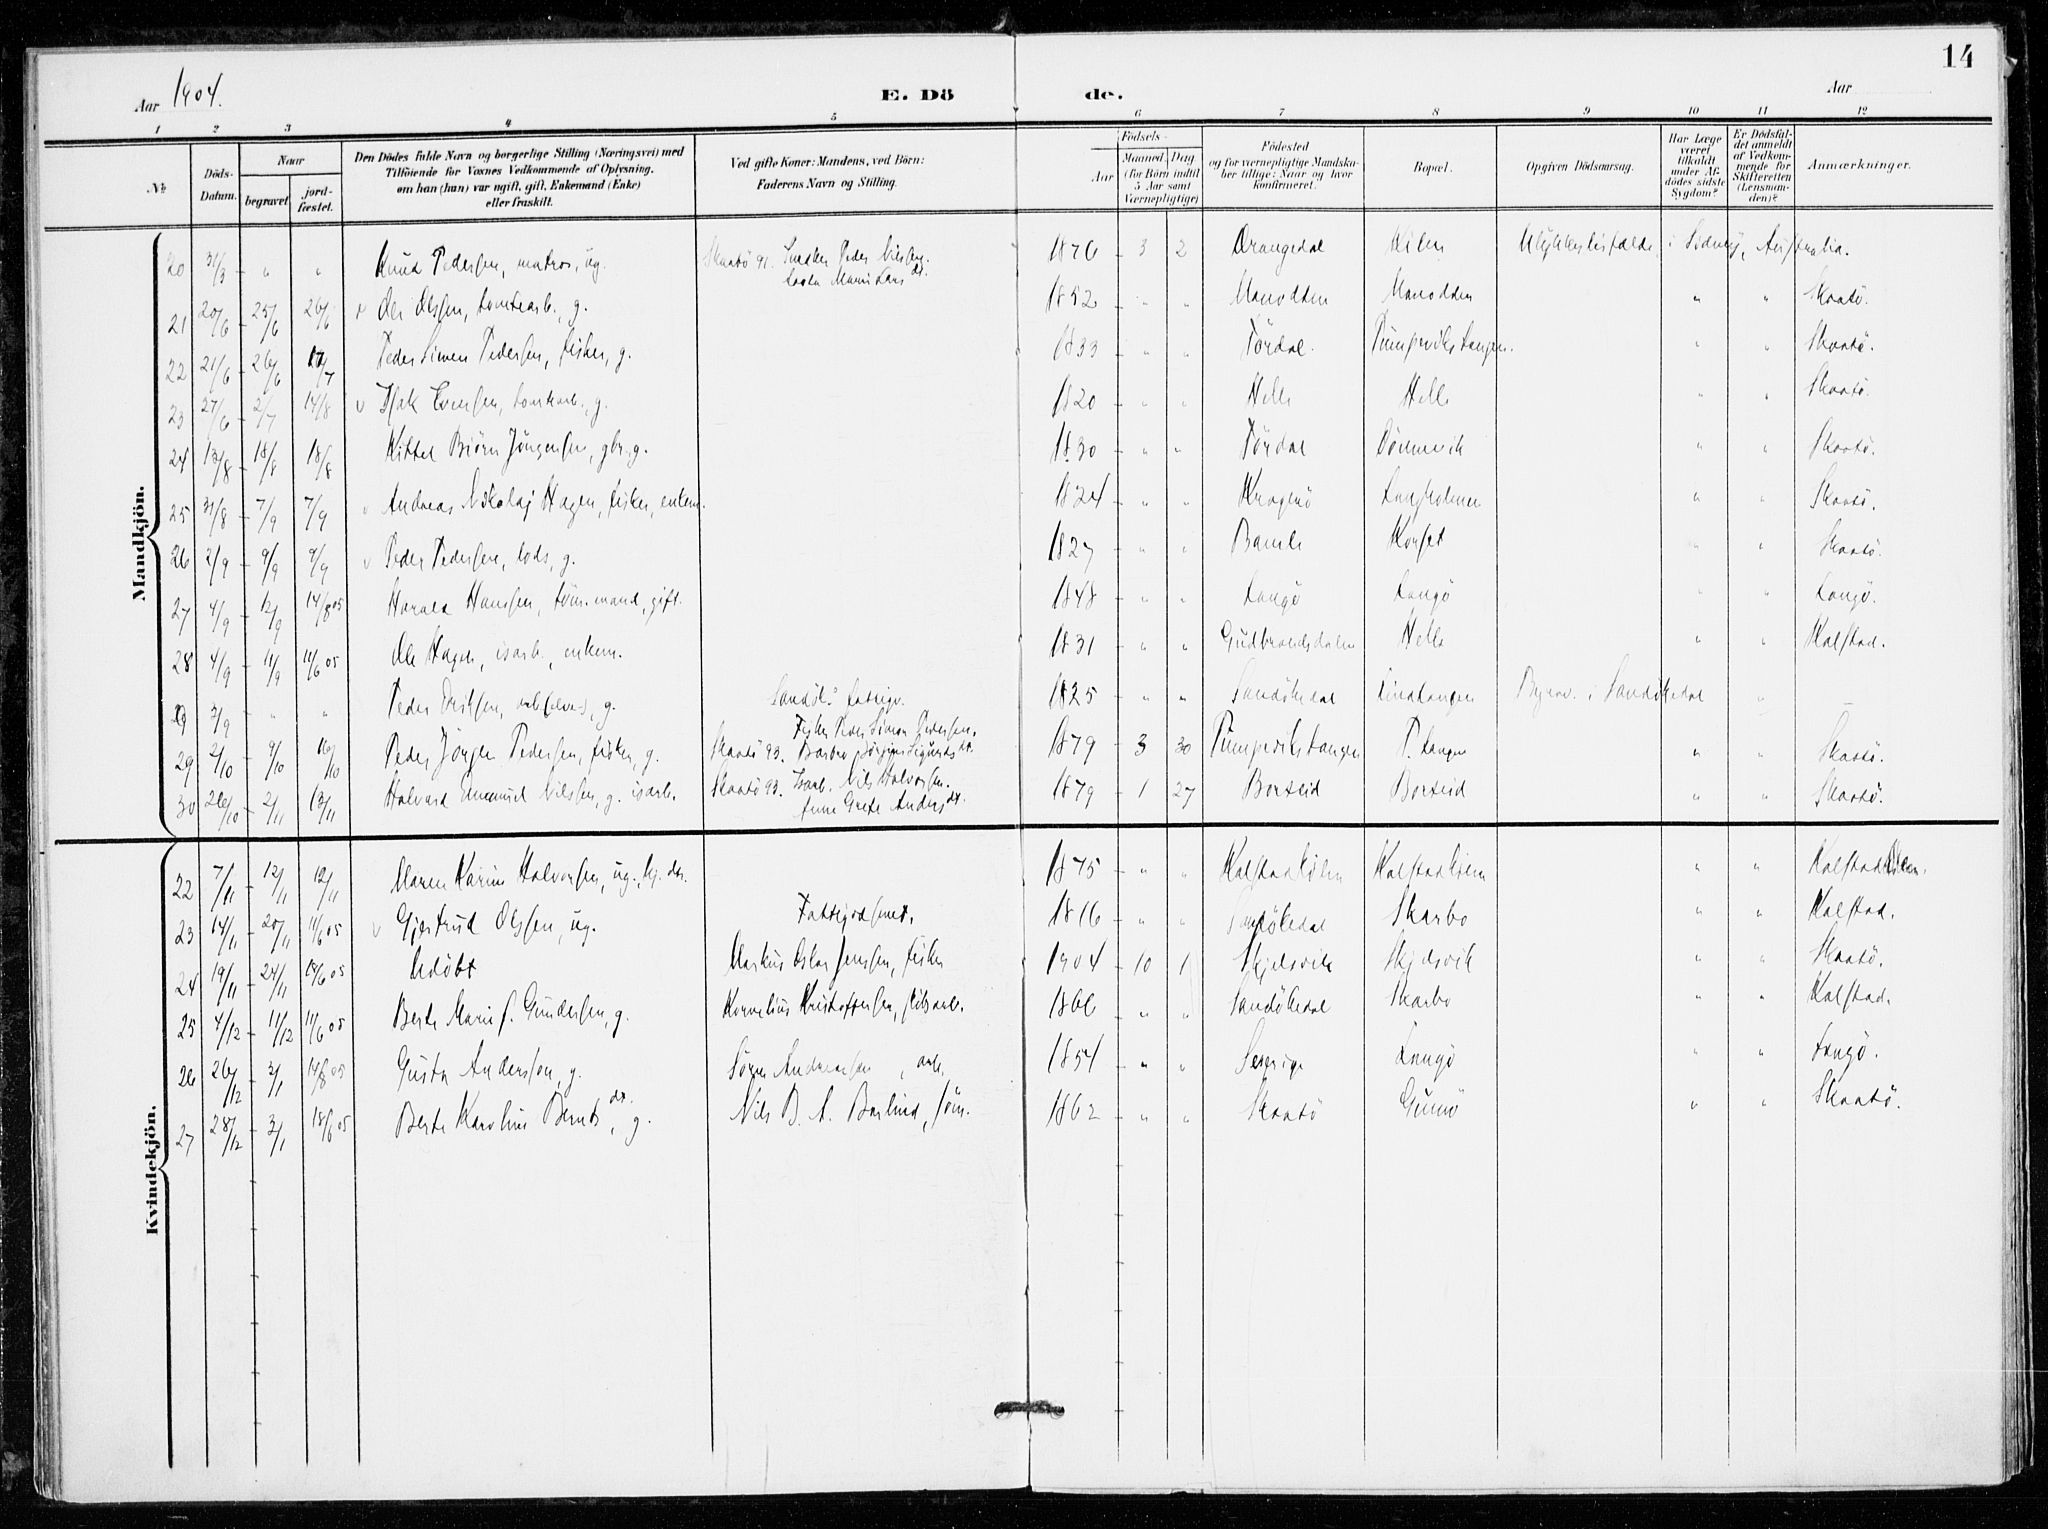 14
Aar 1904.
E. Dö de.
Aar
1 2 3 4 5 6 7 8 9 10 11 12
№ Döds-Datum. Naar begravet. jord-fæstet. Den Dödes fulde Navn og borgerlige Stilling (Næringsvei) med Tilföiende for Voxnes Vedkommende af Oplysning, om han (hun) var ugift, gift, Enkemand (Enke) eller fraskilt. Ved gifte Koner: Mandens, ved Börn: Faderens Navn og Stilling. Födsels- Aar Maaned. Dag (for Börn indtil 5 Aar samt Værnepligtige) Födested og for værnepligtige Mandska-ber tillige: Naar og hvor konfirmeret. Bopæl. Opgiven Dödsaarsag. Har Læge været tilkaldt under Af-dödes sidste Sygdom? Er Dödsfal-det anmeldt af Vedkom-mende for Skifteretten (Lensman-den)? Anmærkninger.
Mandkjön.
20 31/3 " " Knud Pedersen, matros, ug. Skaatö 91. Snedker Peder Nilsen. 1876 3 2 Drangedal Kilen Ulykkestilfælde i Sidney, Australia.
21 20/6 25/6 26/6 Ole Olssen, tomtearb., g. 1852 " " Manodden Manodden " " Skaatö.
22 21/6 26/6 Peder Simon Pedersen, fisker, g. 1833 " " Tördal. Pumpevikstangen. " " Skaatö.
23 27/6 2/7 14/8 Isak Evensen, tomtearb., g. 1820 " " Helle Helle " " Skaatö.
24 13/8 18/8 18/8 Kittel Biörn Jörgensen, gbr., g. 1830 " " Tördal Dönnevik " " Skaatö.
25 31/8 7/9 7/9 Andreas Nikolaj Hagen, fisker, enkem. 1824 " " Kragerö Langholmen " " Skaatö.
26 2/9 9/9 9/9 Peder Pedersen, lods, g. 1827 " " Bamle Korset " " Skaatö.
27 4/9 12/9 14/8 05 Harald Hanssen, töm.mand, gift. 1848 " " Langö Langö " " Langö.
28 4/9 11/9 11/6 05 Ole Hagen, isarb., enkem. 1831 " " Gudbrandsdalen Helle " " Kalstad.
29 3/9 " " Peder Eriksen, g. Sandök. fattigv. 1825 " " Sandökedal Lindtangen Begrav. i Sandökedal "
29 2/10 9/10 16/10 Peder Jörgen Pedersen, fisker, g. Skaatö 93. Fisker Peder Simon Pedersen. Barbro Jörgine Sigurdsdt. 1879 3 30 Pumpevikstangen P. tangen " " Skaatö.
30 26/10 2/11 13/11 Halvard Emanuel Nilssen, g. isarb. Skaatö 93. Isarb. Nils Halvorsen. Anne Grete Andersdt. 1879 1 27 Borteid Borteid " " Skaatö.
Kvindekjön.
22 7/11 12/11 12/11 Maren Karine Halvorsen, ug., tj. 1875 " " Kalstadkilen Kalstadkilen " " Kalstadkilen.
23 14/11 20/11 11/6 05 Gjertrud Olssen, ug. Fattigvæsenet. 1816 " " Sandökedal Skarbo " " Kalstad.
24 19/11 24/11 Udöbt Markus Oskar Jenssen, fisker 1904 10 1 Skjelsvik Skjelsvik " " Skaatö.
25 4/12 11/12 11/6 05 Berte Marie J. Gundersen, g. Kornelius Kristoffersen, 1866 " " Sandökedal Skarbo " " Kalstad.
26 26/12 3/1 14/8 05 Gusta Anderssen, g. Sören Andreassen, arb. 1854 " " Sverige Langö " " Langö.
27 28/12 3/1 18/6 05 Berte Karoline Berntsdt., g. Nils B. A. Barlind, töm. 1862 " " Skaatö Gumö " " Skaatö.